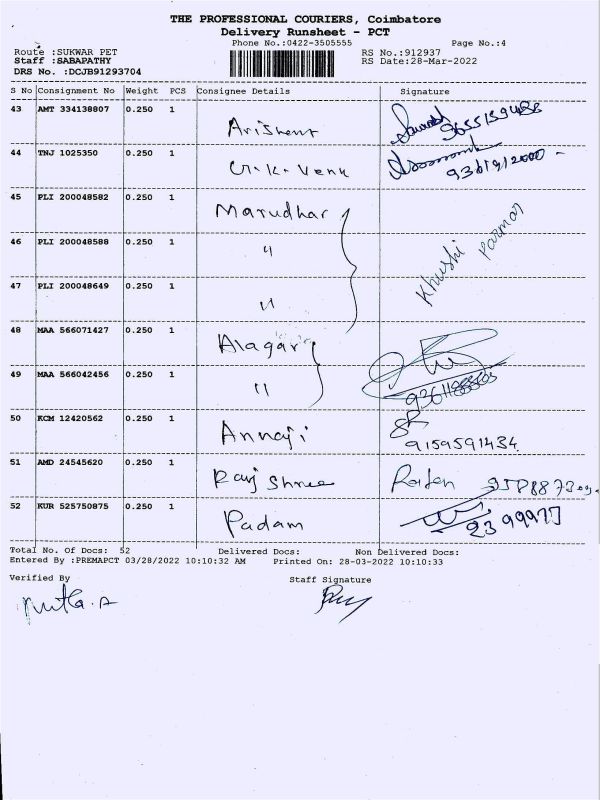 THE PROFESSIONAL COURIERS, Coimbatore
Delivery Runsheet - PCT
Phone No.:0422-3505555 Page No.:4
Route :SUKWAR PET RS No.:912937
Staff :SABAPATHY RS Date:28-Mar-2022
DRS No. :DCJB91293704
S No Consignment No Weight PCS Consignee Details Signature
43 AMT 334138807 0.250 1
44 TNJ 1025350 0.250 1 G.K. Venk
45 PLI 200048582 0.250 1 Marudhar
46 PLI 200048588 0.250 1 "
Khushi Parmar
47 PLI 200048649 0.250 1 "
48 MAA 566071427 0.250 1 Alagar
49 MAA 566042456 0.250 1 "
50 KCM 12420562 0.250 1 Annaji
9159591434
51 AMD 24545620 0.250 1 Raj Shree
52 KUR 525750875 0.250 1 Padam
Total No. Of Docs: 52 Delivered Docs: Non Delivered Docs:
Entered By :PREMAPCT 03/28/2022 10:10:32 AM Printed On: 28-03-2022 10:10:33
Verified By Staff Signature